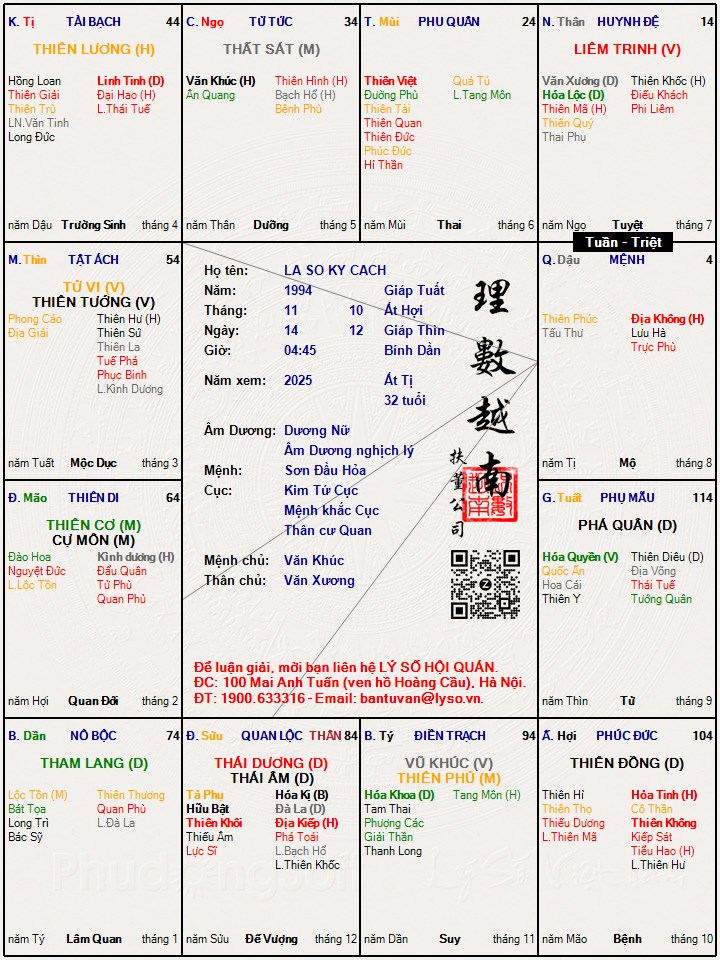 K. Tị TÀI BẠCH 44
THIÊN LƯƠNG (H)
Hồng Loan Linh Tinh (D)
Thiên Giải Đại Hao (H)
Thiên Trù L.Thái Tuế
LN.Văn Tinh
Long Đức
năm Dậu Trường Sinh tháng 4
C. Ngọ TỬ TỨC 34
THẤT SÁT (M)
Văn Khúc (H) Thiên Hình (H)
Ân Quang Bạch Hổ (H)
Bệnh Phù
năm Thân Dưỡng tháng 5
T. Mùi PHU QUÂN 24
Thiên Việt Quả Tú
Đường Phù L.Tang Môn
Thiên Tài
Thiên Quan
Thiên Đức
Phúc Đức
Hỉ Thần
năm Mùi Thai tháng 6
N. Thân HUYNH ĐỆ 14
LIÊM TRINH (V)
Văn Xương (D) Thiên Khốc (H)
Hóa Lộc (D) Điếu Khách
Thiên Mã (H) Phi Liêm
Thiên Quý
Thai Phụ
năm Ngọ Tuyệt tháng 7
Tuần - Triệt
M. Thìn TẬT ÁCH 54
TỬ VI (V)
THIÊN TƯỚNG (V)
Phong Cáo Thiên Hư (H)
Địa Giải Thiên Sứ
Thiên La
Tuế Phá
Phục Binh
L.Kình Dương
năm Tuất Mộc Dục tháng 3
Họ tên: LA SO KY CACH
Năm: 1994 Giáp Tuất
Tháng: 11 10 Ất Hợi
Ngày: 14 12 Giáp Thìn
Giờ: 04:45 Bính Dần
Năm xem: 2025 Ất Tị
32 tuổi
Âm Dương: Dương Nữ
Âm Dương nghịch lý
Mệnh: Sơn Đầu Hỏa
Cục: Kim Tứ Cục
Mệnh khắc Cục
Thân cư Quan
Mệnh chủ: Văn Khúc
Thân chủ: Văn Xương
理數越南
扶董公司
Để luận giải, mời bạn liên hệ LÝ SỐ HỘI QUÁN.
ĐC: 100 Mai Anh Tuấn (ven hồ Hoàng Cầu), Hà Nội.
ĐT: 1900.633316 - Email: bantuvan@lyso.vn.
Q. Dậu MỆNH 4
Thiên Phúc Địa Không (H)
Tấu Thư Lưu Hà
Trực Phù
năm Tị Mộ tháng 8
Đ. Mão THIÊN DI 64
THIÊN CƠ (M)
CỰ MÔN (M)
Đào Hoa Kình dương (H)
Nguyệt Đức Đẩu Quân
L.Lộc Tồn Tử Phù
Quan Phủ
năm Hợi Quan Đới tháng 2
G. Tuất PHỤ MẪU 114
PHÁ QUÂN (D)
Hóa Quyền (V) Thiên Diêu (D)
Quốc Ấn Địa Võng
Hoa Cái Thái Tuế
Thiên Y Tướng Quân
năm Thìn Tử tháng 9
B. Dần NÔ BỘC 74
THAM LANG (D)
Lộc Tồn (M) Thiên Thương
Bát Tọa Quan Phù
Long Trì L.Đà La
Bác Sỹ
năm Tý Lâm Quan tháng 1
Đ. Sửu QUAN LỘC THÂN 84
THÁI DƯƠNG (D)
THÁI ÂM (D)
Tả Phụ Hóa Kị (B)
Hữu Bật Đà La (D)
Thiên Khôi Địa Kiếp (H)
Thiếu Âm Phá Toái
Lực Sĩ L.Bạch Hổ
L.Thiên Khốc
năm Sửu Đế Vượng tháng 12
B. Tý ĐIỀN TRẠCH 94
VŨ KHÚC (V)
THIÊN PHỦ (M)
Hóa Khoa (D) Tang Môn (H)
Tam Thai
Phượng Các
Giải Thần
Thanh Long
năm Dần Suy tháng 11
Ấ. Hợi PHÚC ĐỨC 104
THIÊN ĐỒNG (D)
Thiên Hỉ Hỏa Tinh (H)
Thiên Thọ Cô Thần
Thiếu Dương Thiên Không
L.Thiên Mã Kiếp Sát
Tiểu Hao (H)
L.Thiên Hư
năm Mão Bệnh tháng 10